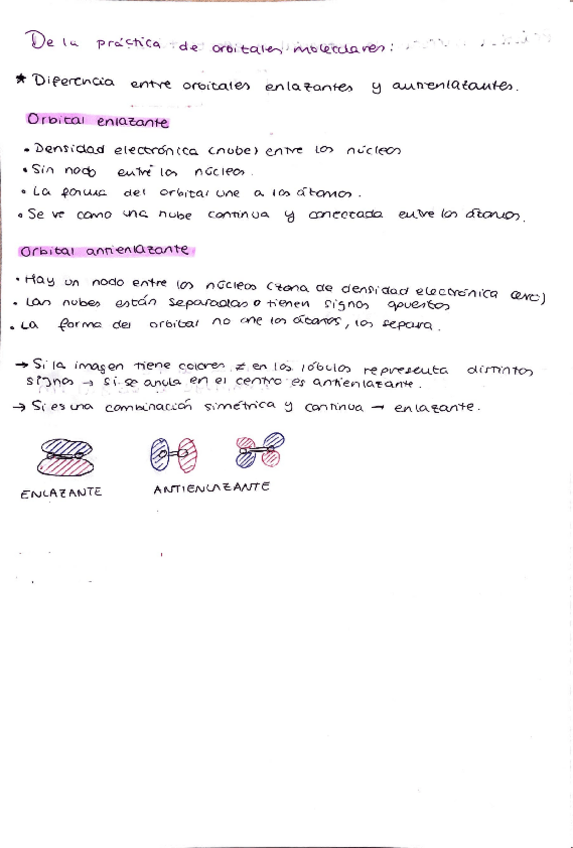 De la práctica de orbitales moleculares:
* Diferencia entre orbitales enlazantes y antienlazantes.
Orbital enlazante
• Densidad electrónica (nube) entre los núcleos
• Sin nodo entre los núcleos.
• La forma del orbital une a los átomos.
• Se ve como una nube continua y conectada entre los átomos.
Orbital antienlazante
• Hay un nodo entre los núcleos (zona de densidad electrónica cero)
• Las nubes están separadas o tienen signos opuestos
• La forma del orbital no une los átomos, los separa.
→ Si la imagen tiene colores ≠ en los lóbulos representa distintos
signos → si se anula en el centro es antienlazante.
→ Si es una combinación simétrica y continua → enlazante.
ENLAZANTE ANTIENLAZANTE